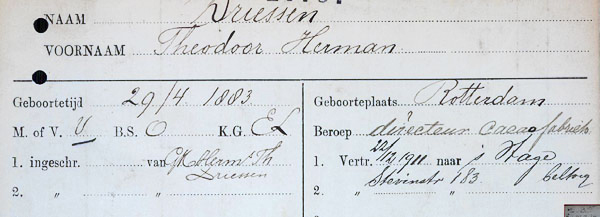 NAAM Driessen
VOORNAAM Theodoor Herman
Geboortetijd 29/4 1883
Geboorteplaats Rotterdam
M. of V. V B.S. O K.G. EL
Beroep directeur cacaofabriek
1. ingeschr. van Herm Th Driessen
1. Vertr. 1911 naar 's Hage
2. " "
2. " " Stevinstr 183